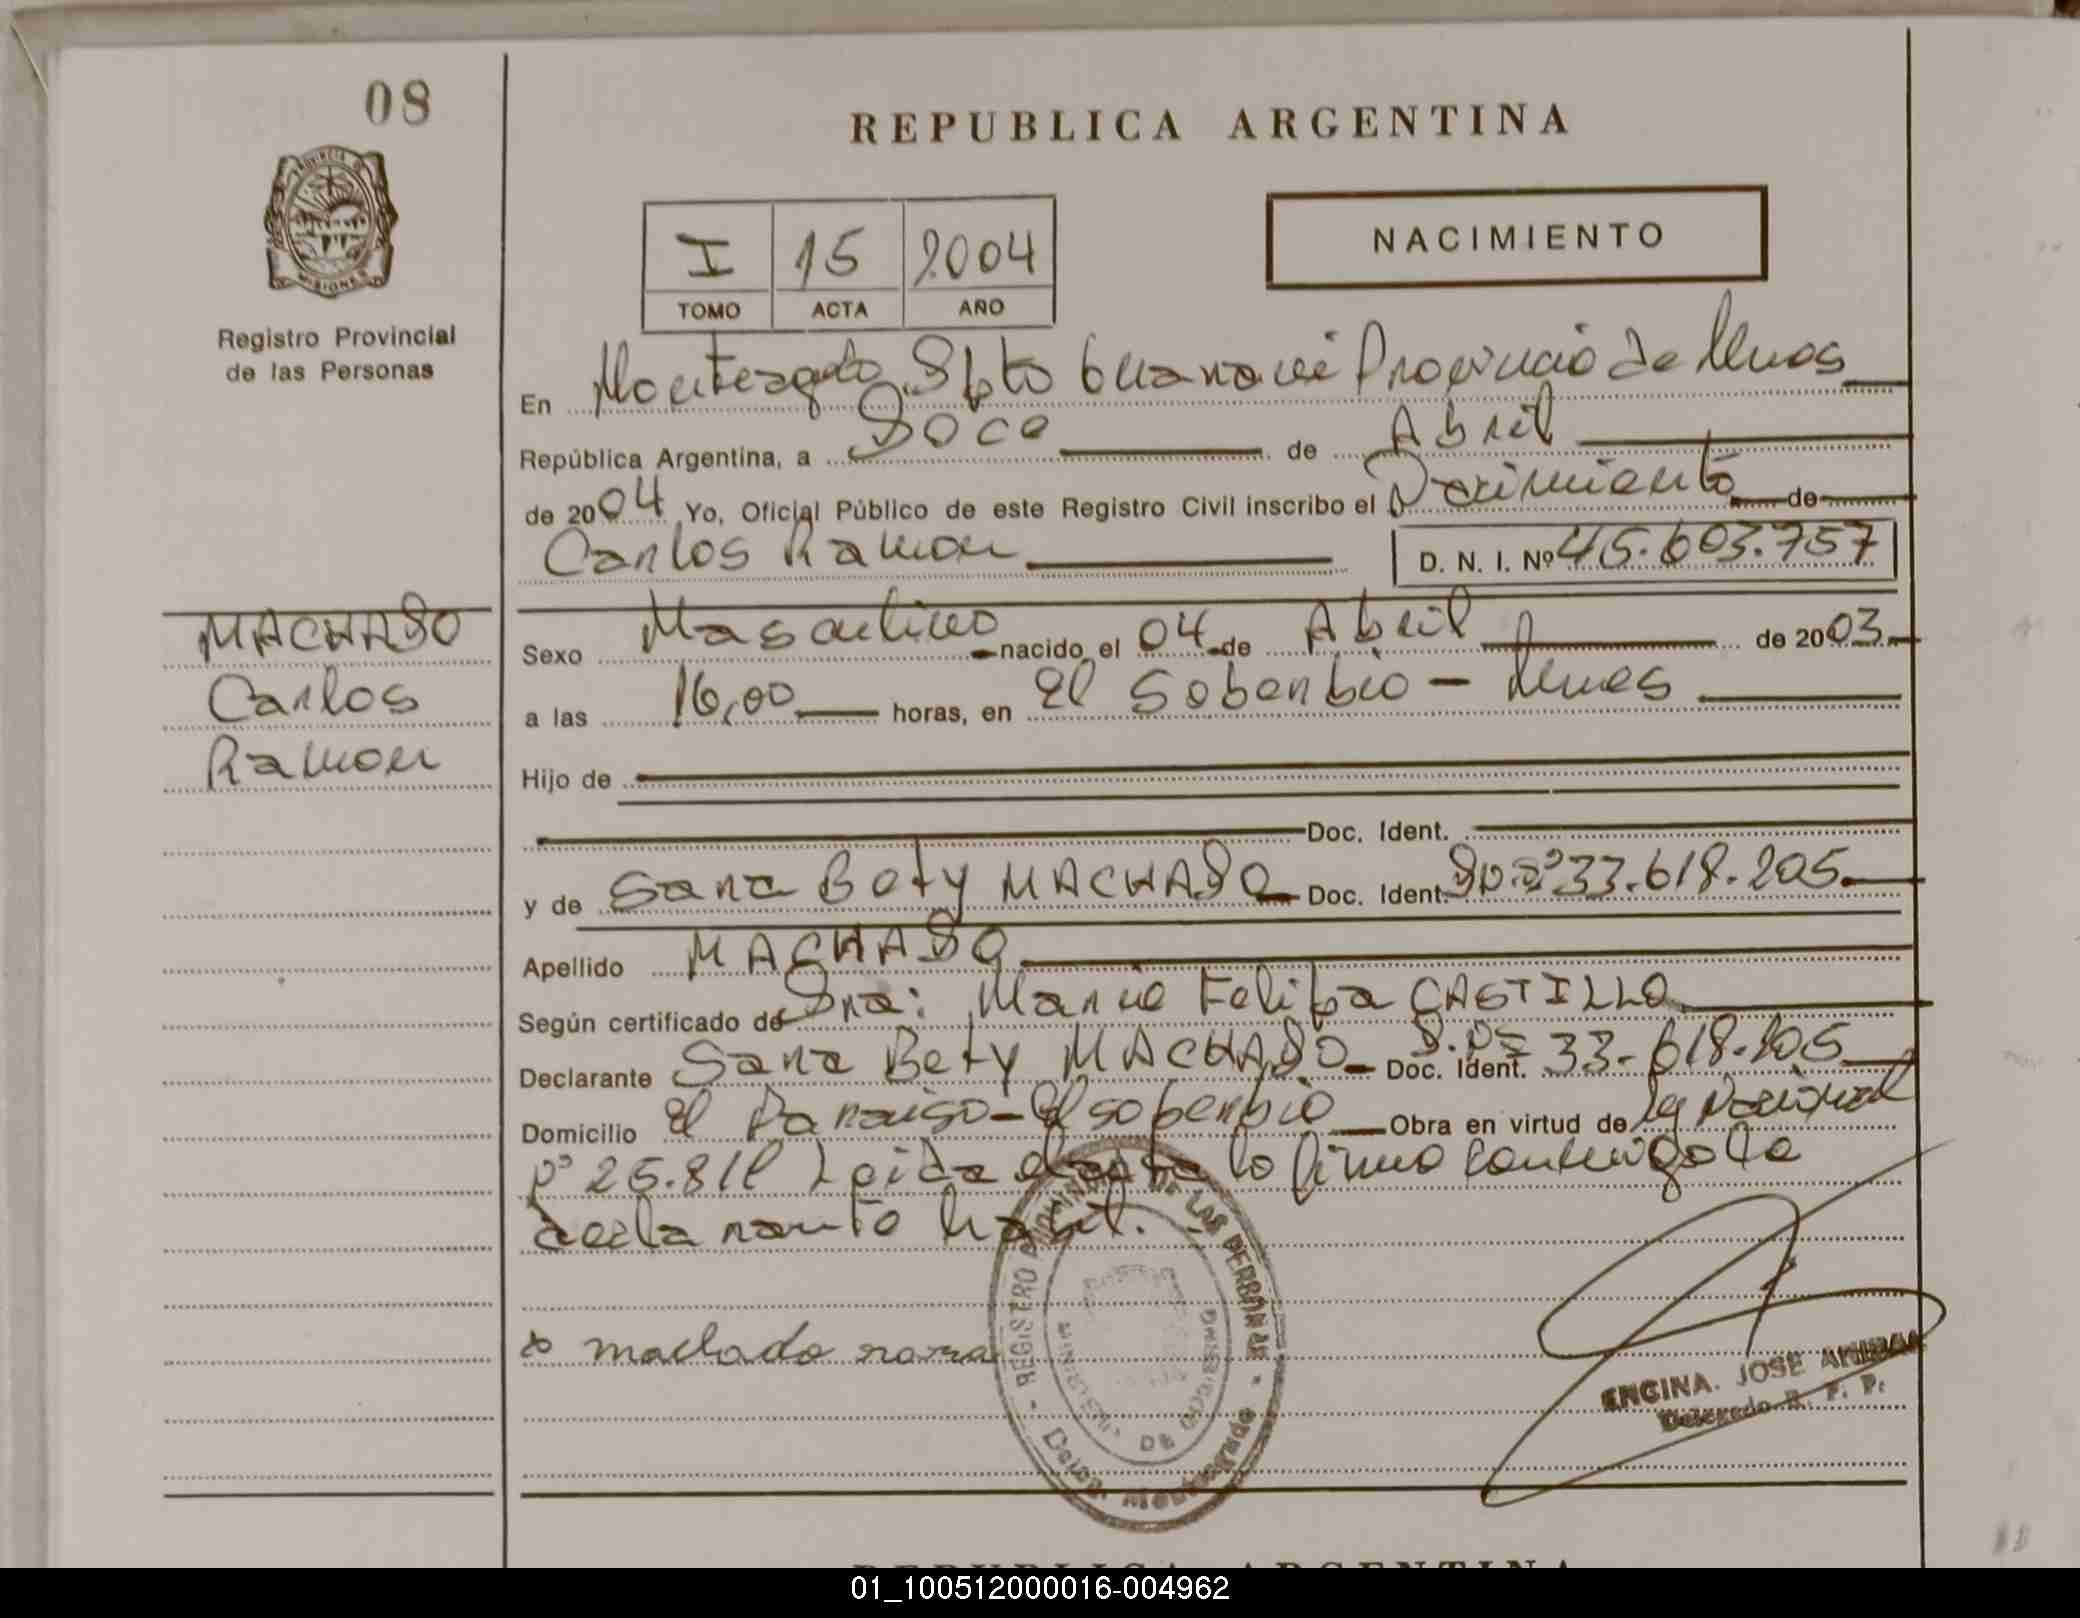 08
REPUBLICA ARGENTINA
PROVINCIA DE
MISIONES
Registro Provincial
de las Personas
I 15 2004
TOMO ACTA AÑO
NACIMIENTO
En Monteagudo Dpto Guarani Provincia de Mnes
República Argentina, a Doce de Abril
de 2004 Yo, Oficial Público de este Registro Civil inscribo el Nacimiento de
Carlos Ramon D. N. I. Nº 45.603.757
MACHADO
Carlos
Ramon
Sexo Masculino nacido el 04 de Abril de 2003
a las 16,00 horas, en El Soberbio - Mnes
Hijo de
Doc. Ident.
y de Sara Bety MACHADO Doc. Ident. 33.618.205
Apellido MACHADO
Según certificado de Dra: Maria Felipa CASTILLO
Declarante Sara Bety MACHADO Doc. Ident. 33.618.205
Domicilio El Paraiso - El Soberbio Obra en virtud de Ley Nacional
Nº 25.819 Leida el acta la firma conmigo la
declarante habil.
machado sara
REGISTRO PROVINCIAL DE LAS PERSONAS
MINISTERIO DE GOBIERNO
Deleg. Monteagudo
ENCINA. JOSE ANIBAL
Delegado R. P. P.
REPUBLICA ARGENTINA
01_100512000016-004962